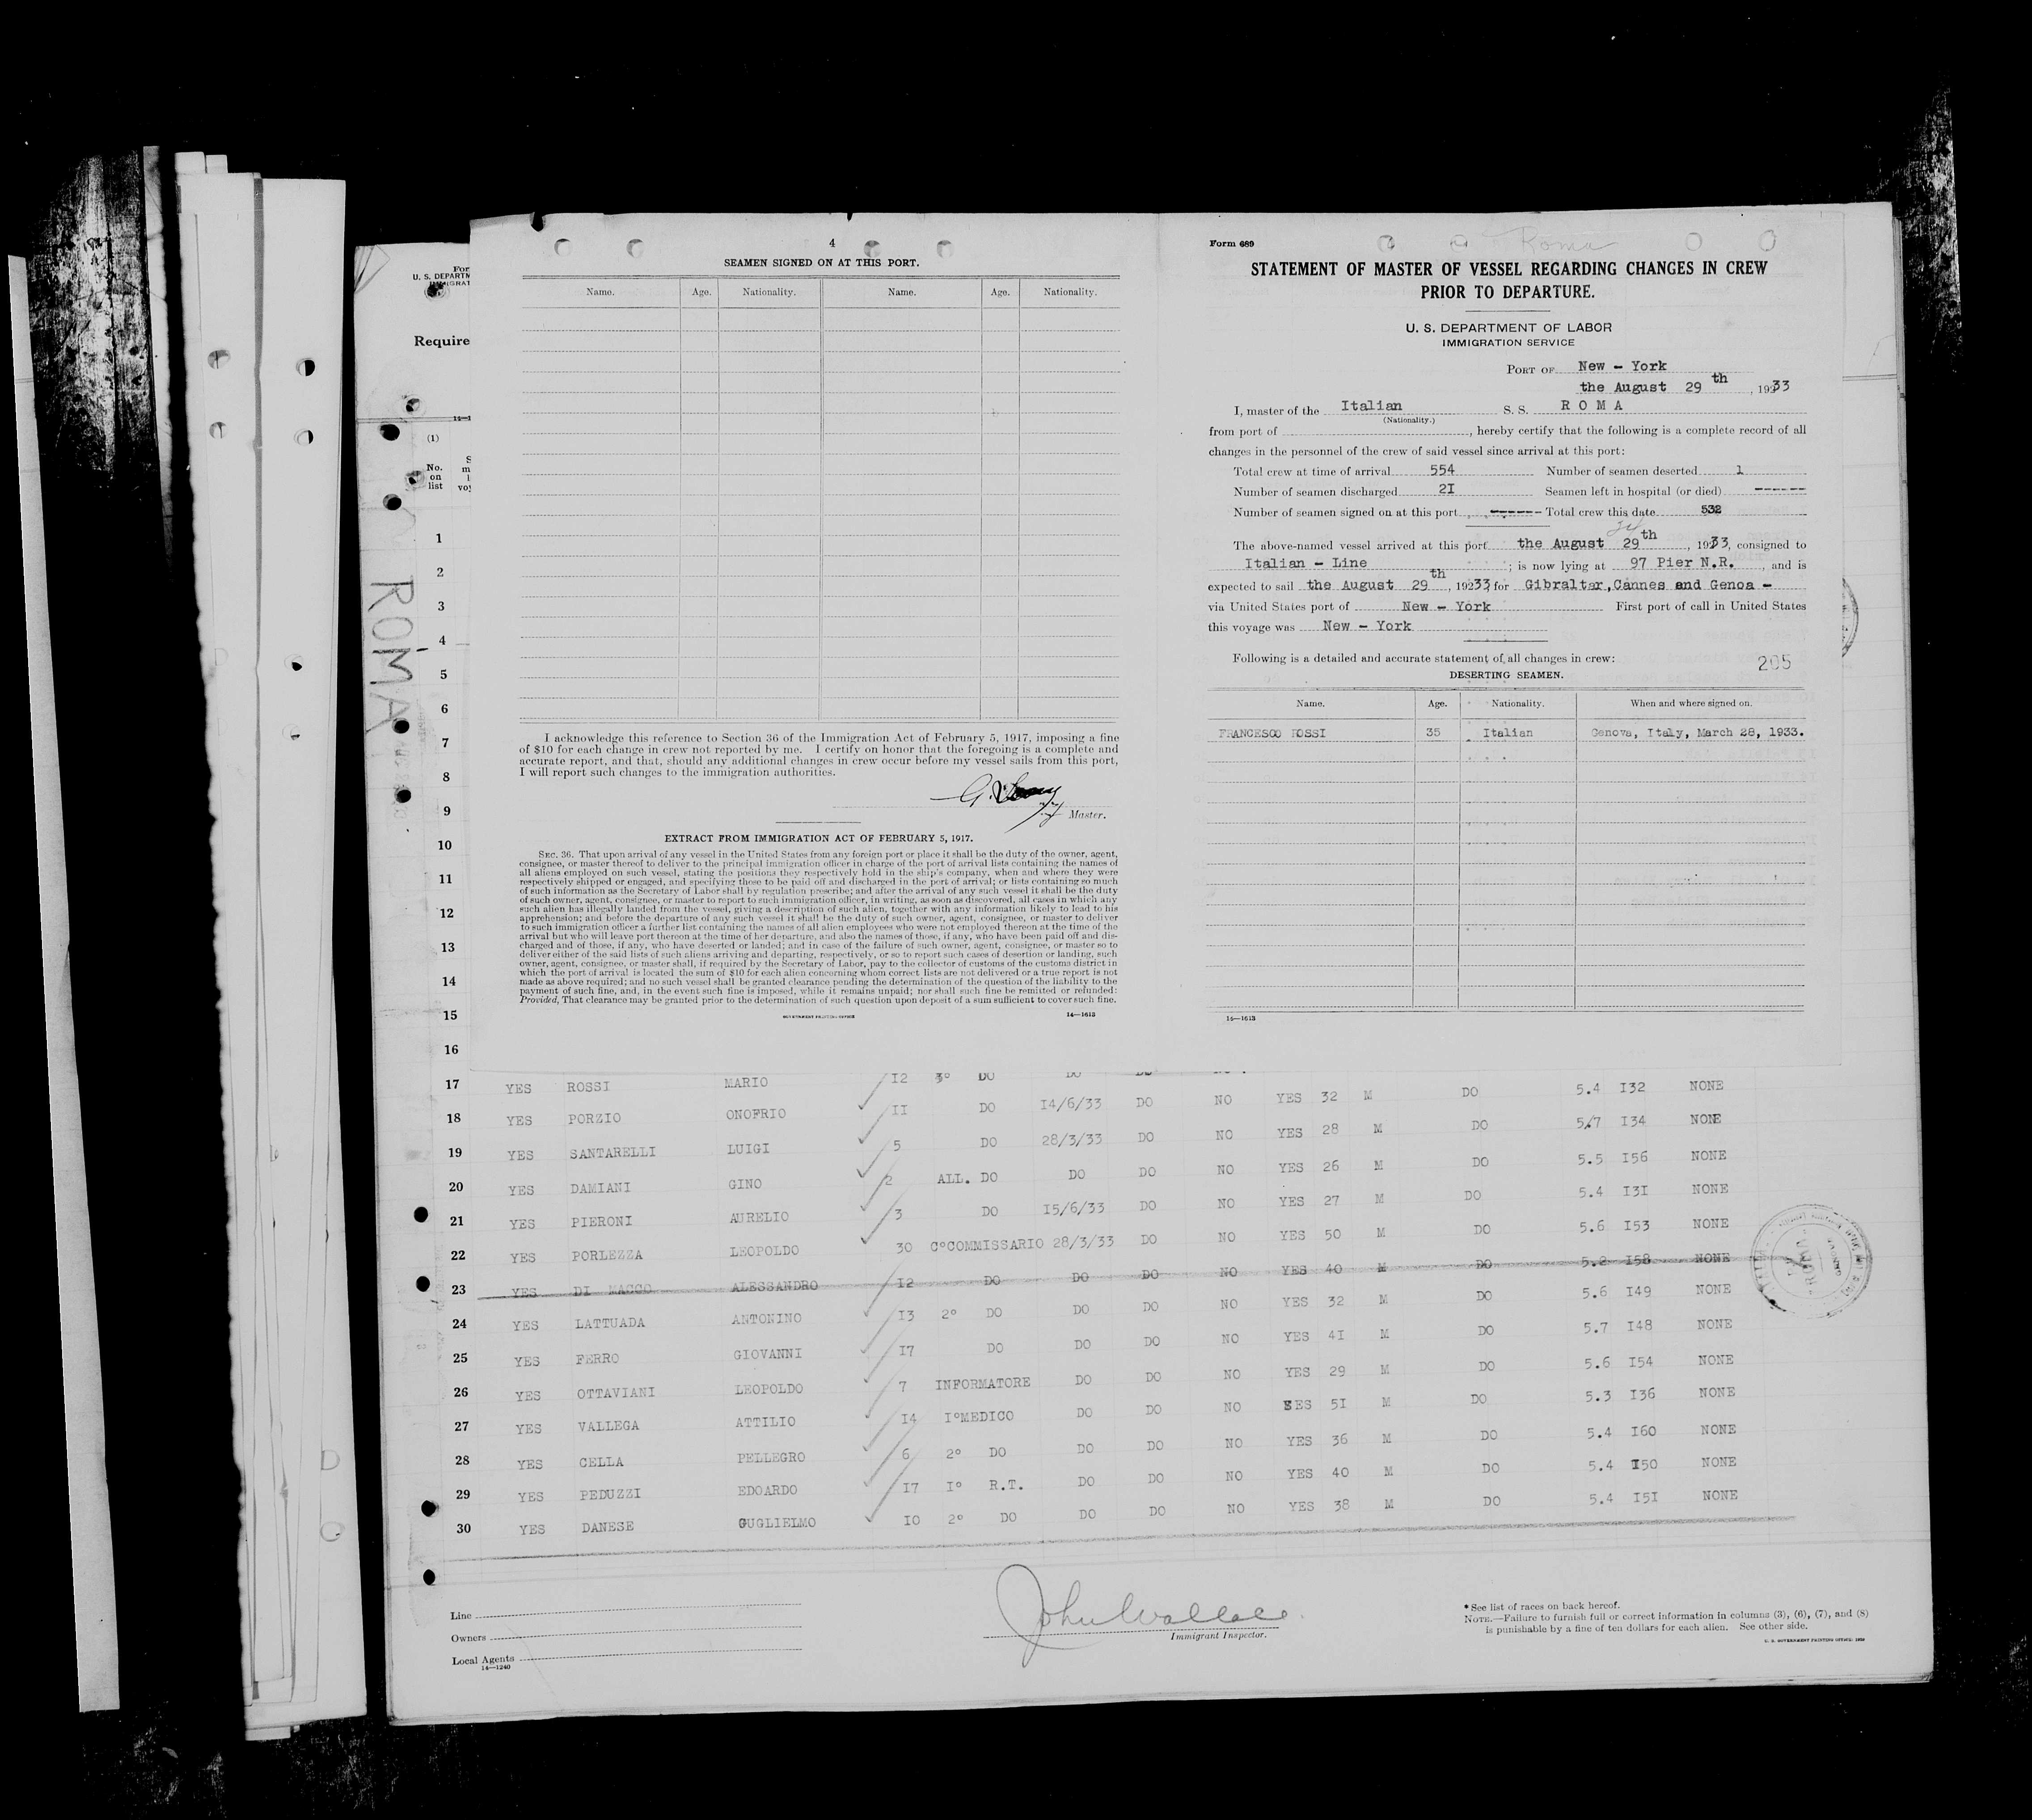 For
U. S. DEPARTM
IMMIGRAT
Require
(1)
No.
on
list
ROMA
4
SEAMEN SIGNED ON AT THIS PORT.
Name. Age. Nationality. Name. Age. Nationality.
I acknowledge this reference to Section 36 of the Immigration Act of February 5, 1917, imposing a fine
of $10 for each change in crew not reported by me. I certify on honor that the foregoing is a complete and
accurate report, and that, should any additional changes in crew occur before my vessel sails from this port,
I will report such changes to the immigration authorities.
Master.
EXTRACT FROM IMMIGRATION ACT OF FEBRUARY 5, 1917.
SEC. 36. That upon arrival of any vessel in the United States from any foreign port or place it shall be the duty of the owner, agent,
consignee, or master thereof to deliver to the principal immigration officer in charge of the port of arrival lists containing the names of
all aliens employed on such vessel, stating the positions they respectively hold in the ship's company, when and where they were
respectively shipped or engaged, and specifying those to be paid off and discharged in the port of arrival; or lists containing so much
of such information as the Secretary of Labor shall by regulation prescribe; and after the arrival of any such vessel it shall be the duty
of such owner, agent, consignee, or master to report to such immigration officer, in writing, as soon as discovered, all cases in which any
such alien has illegally landed from the vessel, giving a description of such alien, together with any information likely to lead to his
apprehension; and before the departure of any such vessel it shall be the duty of such owner, agent, consignee, or master to deliver
to such immigration officer a further list containing the names of all alien employees who were not employed thereon at the time of the
arrival but who will leave port thereon at the time of her departure, and also the names of those, if any, who have been paid off and dis-
charged and of those, if any, who have deserted or landed; and in case of the failure of such owner, agent, consignee, or master so to
deliver either of the said lists of such aliens arriving and departing, respectively, or so to report such cases of desertion or landing, such
owner, agent, consignee, or master shall, if required by the Secretary of Labor, pay to the collector of customs of the customs district in
which the port of arrival is located the sum of $10 for each alien concerning whom correct lists are not delivered or a true report is not
made as above required; and no such vessel shall be granted clearance pending the determination of the question of the liability to the
payment of such fine, and, in the event such fine is imposed, while it remains unpaid; nor shall such fine be remitted or refunded:
Provided, That clearance may be granted prior to the determination of such question upon deposit of a sum sufficient to cover such fine.
GOVERNMENT PRINTING OFFICE 14—1613
Form 689
Roma
STATEMENT OF MASTER OF VESSEL REGARDING CHANGES IN CREW
PRIOR TO DEPARTURE.
U. S. DEPARTMENT OF LABOR
IMMIGRATION SERVICE
PORT OF New - York
the August 29 th, 1933
I, master of the Italian S. S. R O M A
(Nationality.)
from port of , hereby certify that the following is a complete record of all
changes in the personnel of the crew of said vessel since arrival at this port:
Total crew at time of arrival 554 Number of seamen deserted 1
Number of seamen discharged 2I Seamen left in hospital (or died) ------
Number of seamen signed on at this port ------ Total crew this date 532
The above-named vessel arrived at this port the August 29th, 1933, consigned to
Italian - Line ; is now lying at 97 Pier N.R. , and is
expected to sail the August 29 th, 19233 for Gibraltar, Cannes and Genoa -
via United States port of New - York First port of call in United States
this voyage was New - York
Following is a detailed and accurate statement of all changes in crew: 205
DESERTING SEAMEN.
Name. Age. Nationality. When and where signed on.
FRANCESCO ROSSI 35 Italian Genova, Italy, March 28, 1933.
14—1613
1
2
3
4
5
6
7
8
9
10
11
12
13
14
15
16
17 YES ROSSI MARIO I2 3° DO DO
18 YES PORZIO ONOFRIO II DO I4/6/33 DO NO YES 32 M DO 5.4 I32 NONE
19 YES SANTARELLI LUIGI 5 DO 28/3/33 DO NO YES 28 M DO 5.7 I34 NONE
20 YES DAMIANI GINO 2 ALL. DO DO DO NO YES 26 M DO 5.5 I56 NONE
21 YES PIERONI AURELIO 3 DO I5/6/33 DO NO YES 27 M DO 5.4 I3I NONE
22 YES PORLEZZA LEOPOLDO 30 C°COMMISSARIO 28/3/33 DO NO YES 50 M DO 5.6 I53 NONE
23 YES DI MACCO ALESSANDRO I2 DO DO DO NO YES 40 M DO 5.2 I58 NONE
24 YES LATTUADA ANTONINO I3 2° DO DO DO NO YES 32 M DO 5.6 I49 NONE
25 YES FERRO GIOVANNI I7 DO DO DO NO YES 4I M DO 5.7 I48 NONE
26 YES OTTAVIANI LEOPOLDO 7 INFORMATORE DO DO NO YES 29 M DO 5.6 I54 NONE
27 YES VALLEGA ATTILIO I4 I°MEDICO DO DO NO YES 5I M DO 5.3 I36 NONE
28 YES CELLA PELLEGRO 6 2° DO DO DO NO YES 36 M DO 5.4 I60 NONE
29 YES PEDUZZI EDOARDO I7 I° R.T. DO DO NO YES 40 M DO 5.4 I50 NONE
30 YES DANESE GUGLIELMO IO 2° DO DO DO NO YES 38 M DO 5.4 I5I NONE
ROMA
GENOVA
Line
Owners
Local Agents
14—1240
John Wallace
Immigrant Inspector.
* See list of races on back hereof.
NOTE.—Failure to furnish full or correct information in columns (3), (6), (7), and (8)
is punishable by a fine of ten dollars for each alien. See other side.
U. S. GOVERNMENT PRINTING OFFICE: 1929